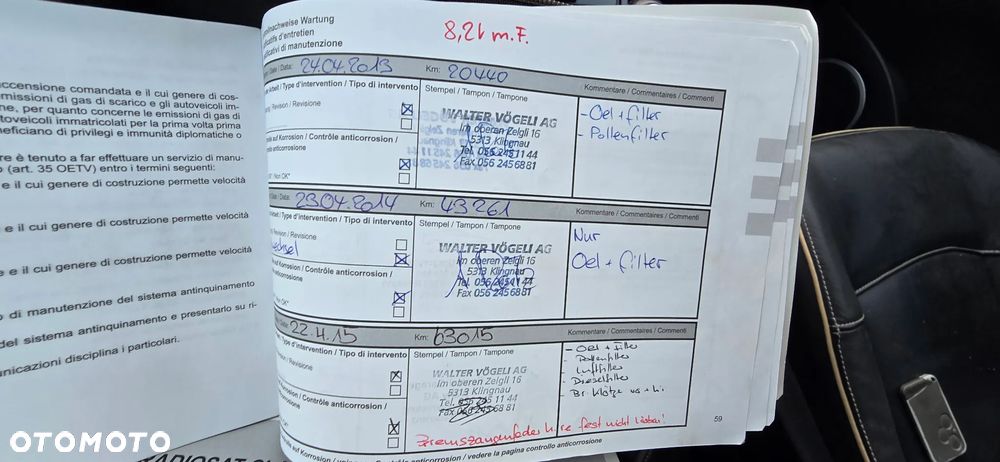 ccensione comandata e il cui genere di cos-
emissioni di gas di scarico e gli autoveicoli im-
ne, per quanto concerne le emissioni di gas di
toveicoli immatricolati per la prima volta prima
neficiano di privilegi e immunità diplomatiche o
re è tenuto a far effettuare un servizio di manu-
o (art. 35 OETV) entro i termini seguenti:
e il cui genere di costruzione permette velocità
e il cui genere di costruzione permette velocità
e il cui genere di costruzione permette velocità
o di manutenzione del sistema antinquinamento
del sistema antinquinamento e presentarlo su ri-
unicazioni disciplina i particolari.
ollnachweise Wartung
ificatifs d'entretien
ificativi di manutenzione
8,2l m.F.
/ Date / Data: 24.04.2013 Km: 20440
Arbeit / Type d'intervention / Tipo di intervento
Stempel / Tampon / Tampone
Kommentare / Commentaires / Commenti
Revision / Revisione
auf Korrosion / Contrôle anticorrosion /
anticorrosione
Non OK*
WALTER VÖGELI AG
Im oberen Zelgli 16
5313 Klingnau
Tel. 056 245 11 44
Fax 056 245 68 81
- Oel + filter
- Pollenfilter
/ Date / Data: 23.04.2014 Km: 43261
/ Type d'intervention / Tipo di intervento
Stempel / Tampon / Tampone
Kommentare / Commentaires / Commenti
Revision / Revisione
auf Korrosion / Contrôle anticorrosion /
anticorrosione
Non OK*
WALTER VÖGELI AG
Im oberen Zelgli 16
5313 Klingnau
Tel. 056 245 11 44
Fax 056 245 68 81
Nur
Oel + filter
Data: 22.4.15 Km: 63015
Type d'intervention / Tipo di intervento
Stempel / Tampon / Tampone
Kommentare / Commentaires / Commenti
Revision / Revisione
Korrosion / Contrôle anticorrosion /
anticorrosione
OK*
WALTER VÖGELI AG
Im oberen Zelgli 16
5313 Klingnau
Tel. 056 245 11 44
Fax 056 245 68 81
- Oel + Filter
- Pollenfilter
- Luftfilter
- Dieselfilter
- Br. Klötze
fest nicht lösbar!
59
auf Korrosion / Contrôle anticorrosion / vedere la pagina controllo anticorrosione
OTOMOTO